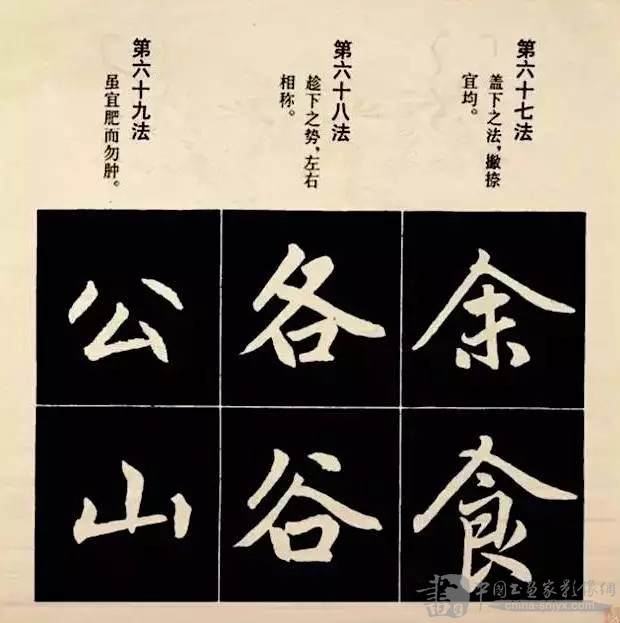 第六十七法
盖下之法，撇捺
宜均。
余
食
第六十八法
趁下之势，左右
相称。
各
谷
第六十九法
虽宜肥而勿肿。
公
山
中国书画家影像网
china-snjyx.com